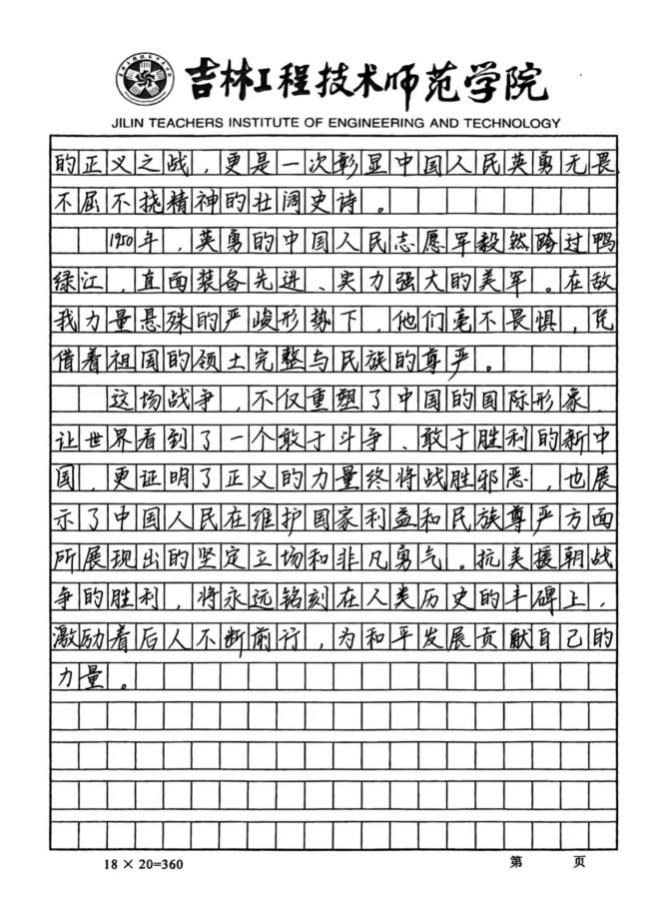 吉林工程技术师范学院
JILIN TEACHERS INSTITUTE OF ENGINEERING AND TECHNOLOGY
的正义之战，更是一次彰显中国人民英勇无畏、
不屈不挠精神的壮阔史诗。
1950年，英勇的中国人民志愿军毅然跨过鸭
绿江，直面装备先进、实力强大的美军。在敌
我力量悬殊的严峻形势下，他们毫不畏惧，凭
借着祖国的领土完整与民族的尊严。
这场战争，不仅重塑了中国的国际形象，
让世界看到了一个敢于斗争、敢于胜利的新中
国，更证明了正义的力量终将战胜邪恶，也展
示了中国人民在维护国家利益和民族尊严方面
所展现出的坚定立场和非凡勇气。抗美援朝战
争的胜利，将永远铭刻在人类历史的丰碑上，
激励着后人不断前行，为和平发展贡献自己的
力量。
18 × 20=360
第 页